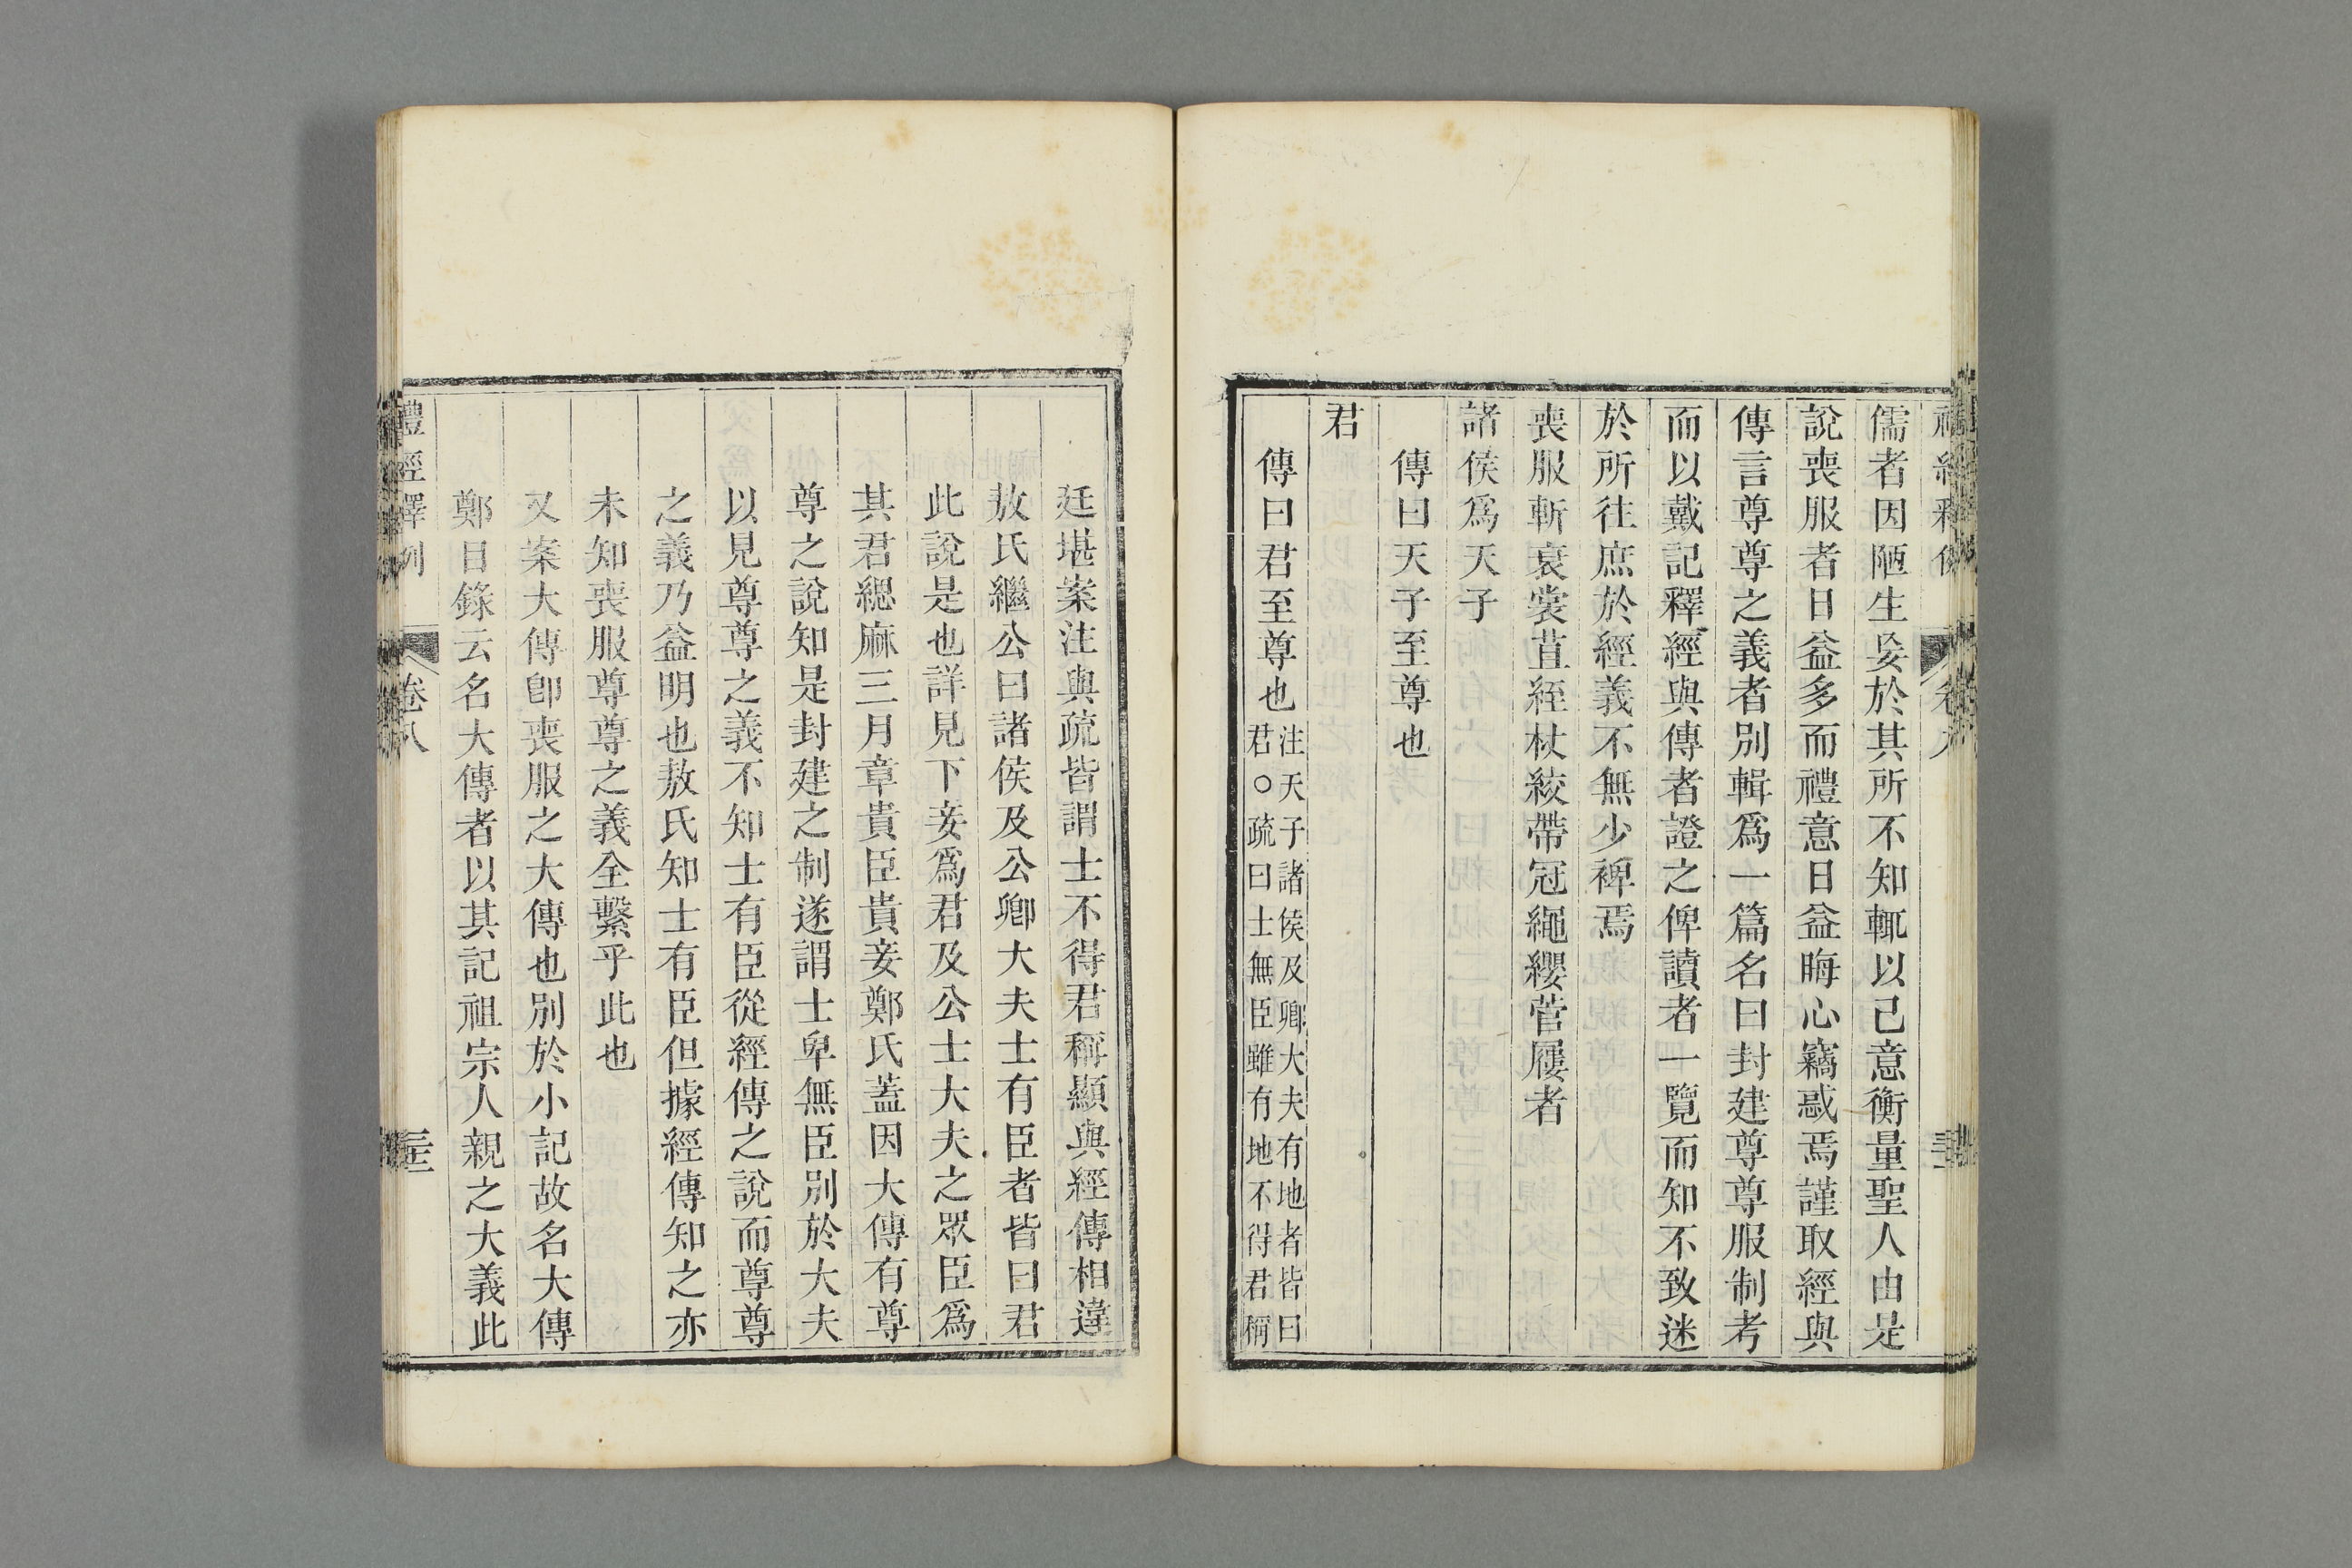 儒者因陋生妄於其所不知輒以己意衡量聖人由是
說喪服者日益多而禮意日益晦心竊惑焉謹取經與
傳言尊尊之義者別輯爲一篇名曰封建尊尊服制考
而以戴記釋經與傳者證之俾讀者一覽而知不致迷
於所往庶於經義不無少裨焉
喪服斬衰裳苴絰杖絞帶冠繩纓菅屨者
諸侯爲天子
傳曰天子至尊也
君
傳曰君至尊也
注天子諸侯及卿大夫有地者皆曰
君○疏曰士無臣雖有地不得君稱
廷堪案注與疏皆謂士不得君稱顯與經傳相違
敖氏繼公曰諸侯及公卿大夫士有臣者皆曰君
此說是也詳見下妾爲君及公士大夫之眾臣爲
其君緦麻三月章貴臣貴妾鄭氏蓋因大傳有尊
尊之說知是封建之制遂謂士卑無臣別於大夫
以見尊尊之義不知士有臣從經傳之說而尊尊
之義乃益明也敖氏知士有臣但據經傳知之亦
未知喪服尊尊之義全繫乎此也
又案大傳卽喪服之大傳也別於小記故名大傳
鄭目錄云名大傳者以其記祖宗人親之大義此
禮經釋例
卷八